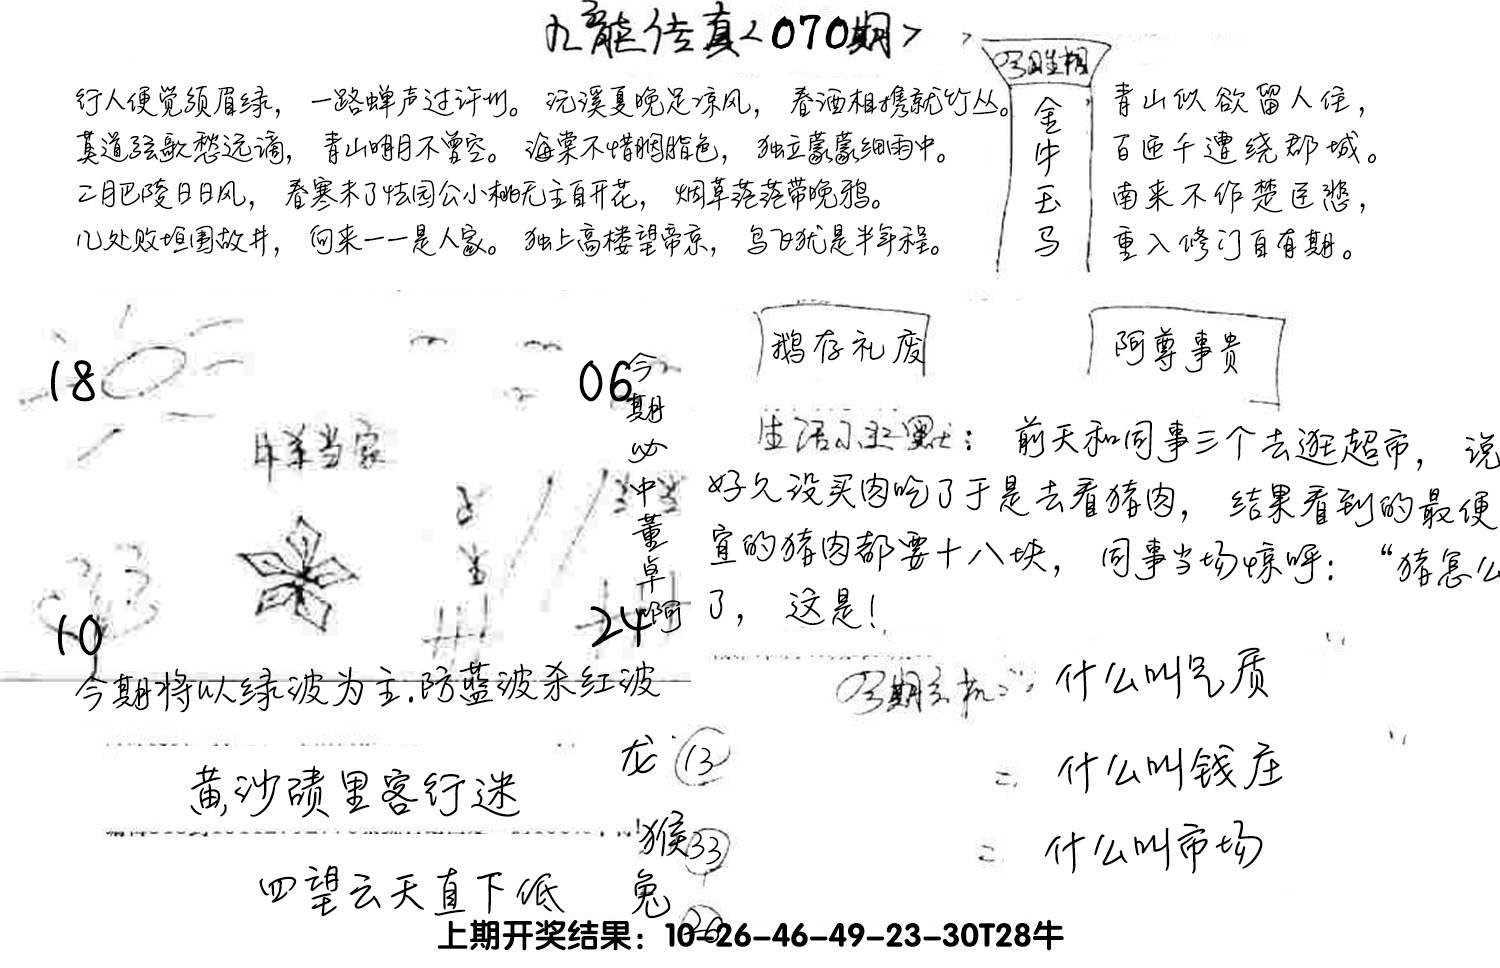 九龙传真<070期>
行人便觉须眉绿，一路蝉声过许州。沅溪夏晚足凉风，春酒相携就竹丛。
莫道弦歌愁远谪，青山明月不曾空。海棠不惜胭脂色，独立蒙蒙细雨中。
二月巴陵日日风，春寒未了怯园公小桃无主自开花，烟草茫茫带晚鸦。
几处败垣围故井，向来一一是人家。独上高楼望帝京，鸟飞犹是半年程。
金
牛
玉
马
青山似欲留人住，
百匝千遭绕郡城。
南来不作楚臣悲，
重入修门自有期。
鹅存礼废
阿尊事贵
18
06
羊当家
今期必中董卓啊
10
24
今期将以绿波为主.防蓝波杀红波
：前天和同事三个去逛超市，说
好久没买肉吃了于是去看猪肉，结果看到的最便
宜的猪肉都要十八块，同事当场惊呼：“猪怎么
了，这是！
什么叫兄质
什么叫钱庄
什么叫市场
黄沙碛里客行迷
四望云天直下低
龙 13
猴 33
兔
上期开奖结果：10-26-46-49-23-30T28牛